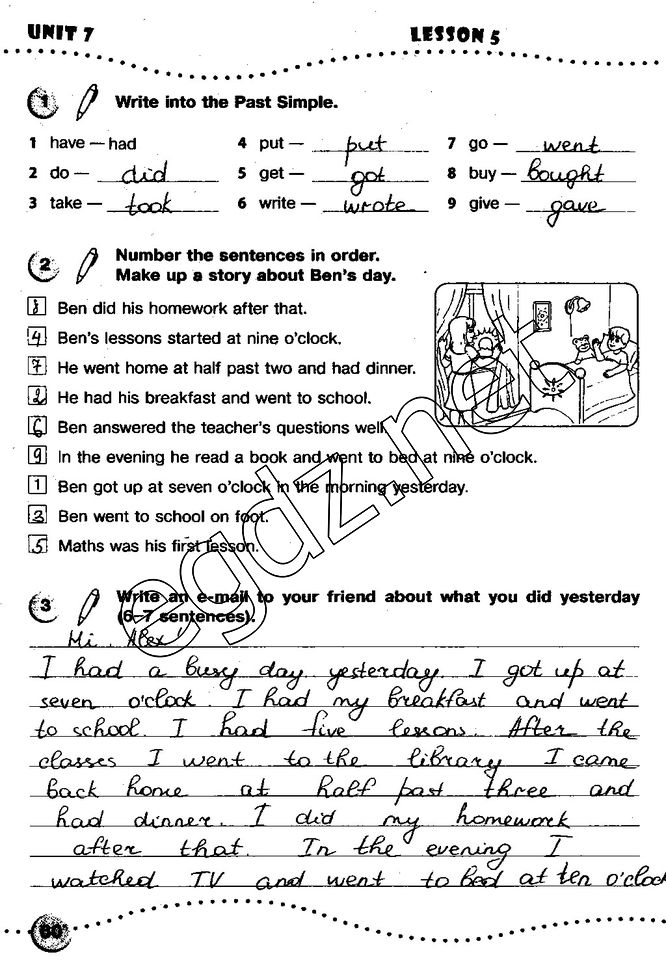 UNIT 7 LESSON 5
1 Write into the Past Simple.
1 have — had 4 put — put 7 go — went
2 do — did 5 get — got 8 buy — bought
3 take — took 6 write — wrote 9 give — gave
2 Number the sentences in order.
Make up a story about Ben's day.
8 Ben did his homework after that.
4 Ben's lessons started at nine o'clock.
7 He went home at half past two and had dinner.
2 He had his breakfast and went to school.
6 Ben answered the teacher's questions well.
9 In the evening he read a book and went to bed at nine o'clock.
1 Ben got up at seven o'clock in the morning yesterday.
3 Ben went to school on foot.
5 Maths was his first lesson.
egdz.net
3 Write an e-mail to your friend about what you did yesterday
(6–7 sentences).
Hi, Alex!
I had a busy day yesterday. I got up at
seven o'clock. I had my breakfast and went
to school. I had five lessons. After the
classes I went to the library I came
back home at half past three and
had dinner. I did my homework
after that. In the evening I
watched TV and went to bed at ten o'clock
60